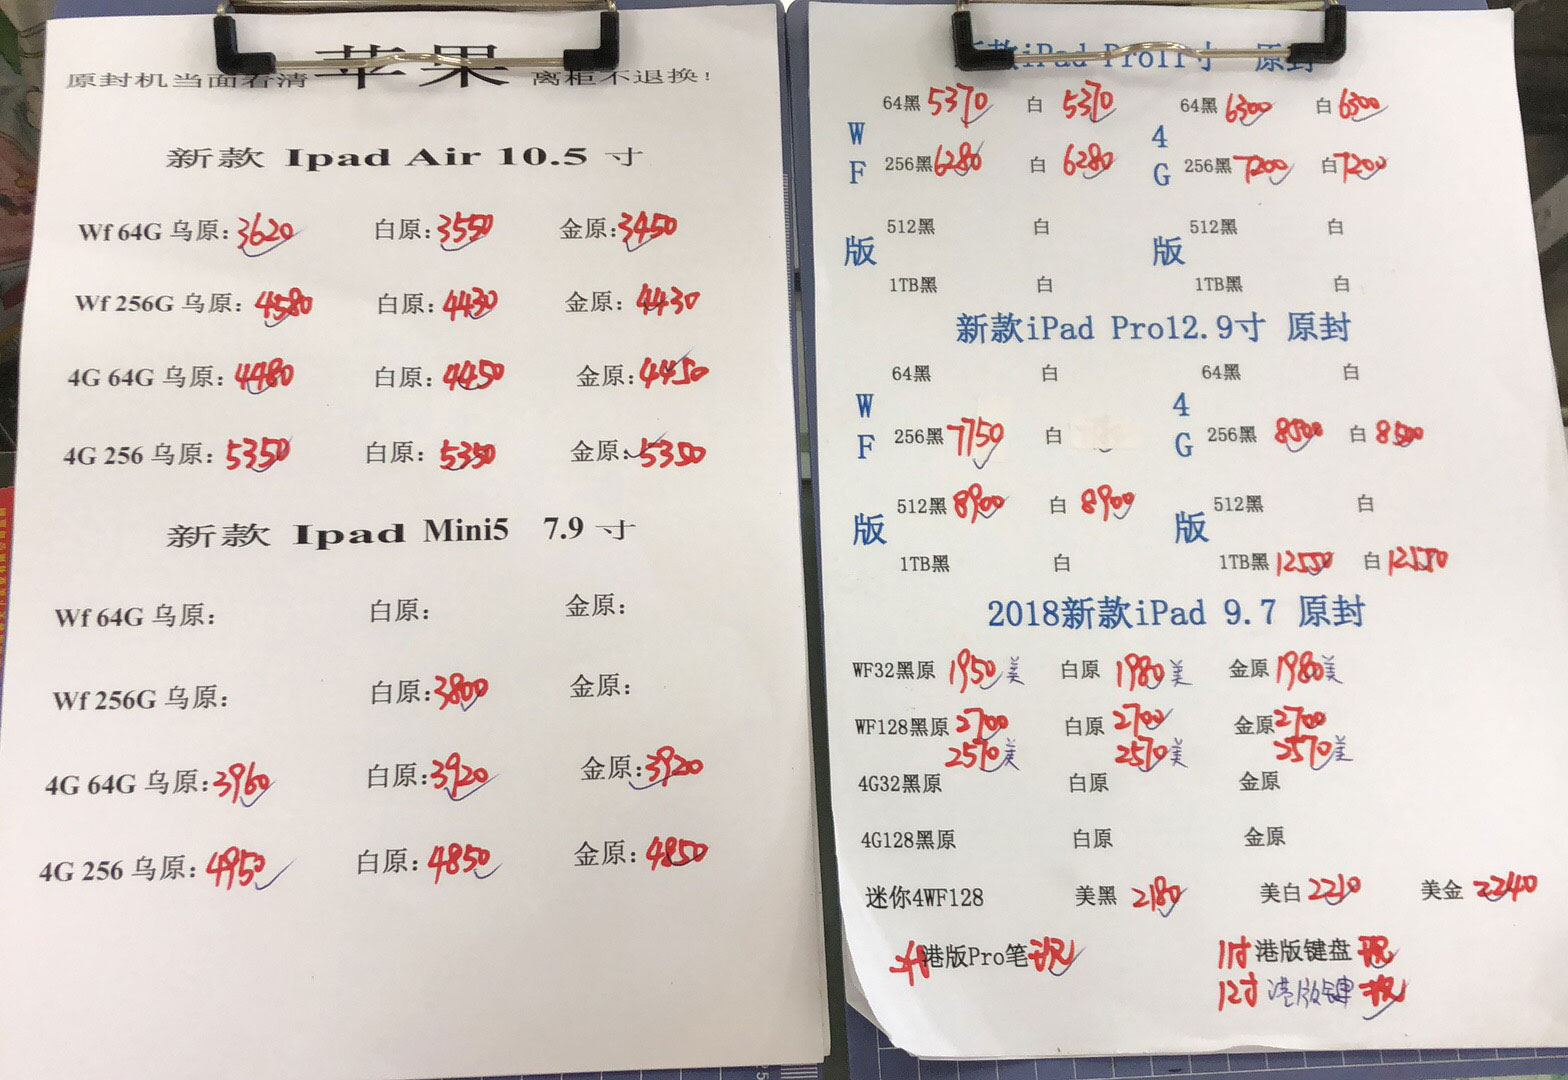 原封机当面看清 苹果 离柜不退换！
新款 Ipad Air 10.5 寸
Wf 64G 乌原：3620 白原：3550 金原：3450
Wf 256G 乌原：4580 白原：4430 金原：4430
4G 64G 乌原：4480 白原：4450 金原：4450
4G 256 乌原：5350 白原：5350 金原：5350
新款 Ipad Mini5 7.9 寸
Wf 64G 乌原： 白原： 金原：
Wf 256G 乌原： 白原：3800 金原：
4G 64G 乌原：3960 白原：3920 金原：3920
4G 256 乌原：4950 白原：4850 金原：4850
新款iPad Pro11寸 原封
WF版
64黑 5370 白 5370
256黑 6280 白 6280
512黑 白
1TB黑 白
4G版
64黑 6300 白 6300
256黑 7200 白 7200
512黑 白
1TB黑 白
新款iPad Pro12.9寸 原封
WF版
64黑 白
256黑 7750 白
512黑 8900 白 8900
1TB黑 白
4G版
64黑 白
256黑 8500 白 8500
512黑 白
1TB黑 12550 白 12550
2018新款iPad 9.7 原封
WF32黑原 1950美 白原 1980美 金原 1980美
WF128黑原 2700 白原 2700 金原 2700
2570美 2570美 2570美
4G32黑原 白原 金原
4G128黑原 白原 金原
迷你4WF128 美黑 2180 美白 2210 美金 2240
港版Pro笔 现 11寸 港版键盘 现
12寸 港版键 现